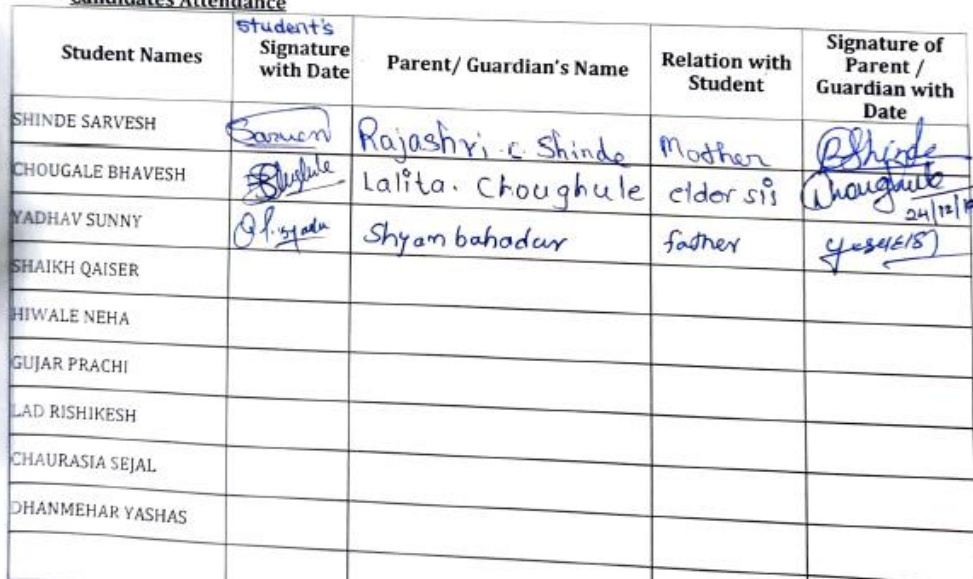 Candidates Attendance
Student Names
Student's
Signature
with Date
Parent/ Guardian's Name
Relation with
Student
Signature of
Parent /
Guardian with
Date
SHINDE SARVESH
Rajashri. c. Shinde
Mother
RShinde
CHOUGALE BHAVESH
Lalita. Choughule
elder sis
Choughule
24/12/
YADHAV SUNNY
Shyam bahadur
father
SHAIKH QAISER
HIWALE NEHA
GUJAR PRACHI
LAD RISHIKESH
CHAURASIA SEJAL
DHANMEHAR YASHAS